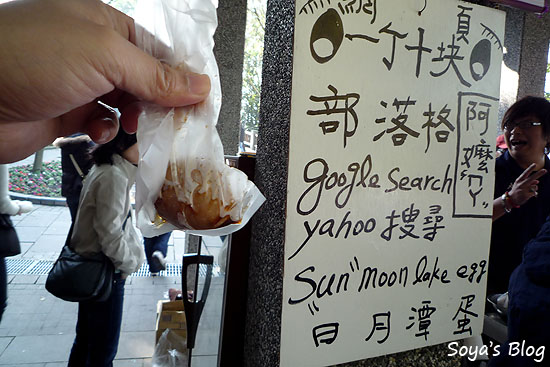 一个十块
部落格
阿嬤
google search
yahoo 搜尋
Sun "moon lake egg
"日月潭蛋
Soya's Blog